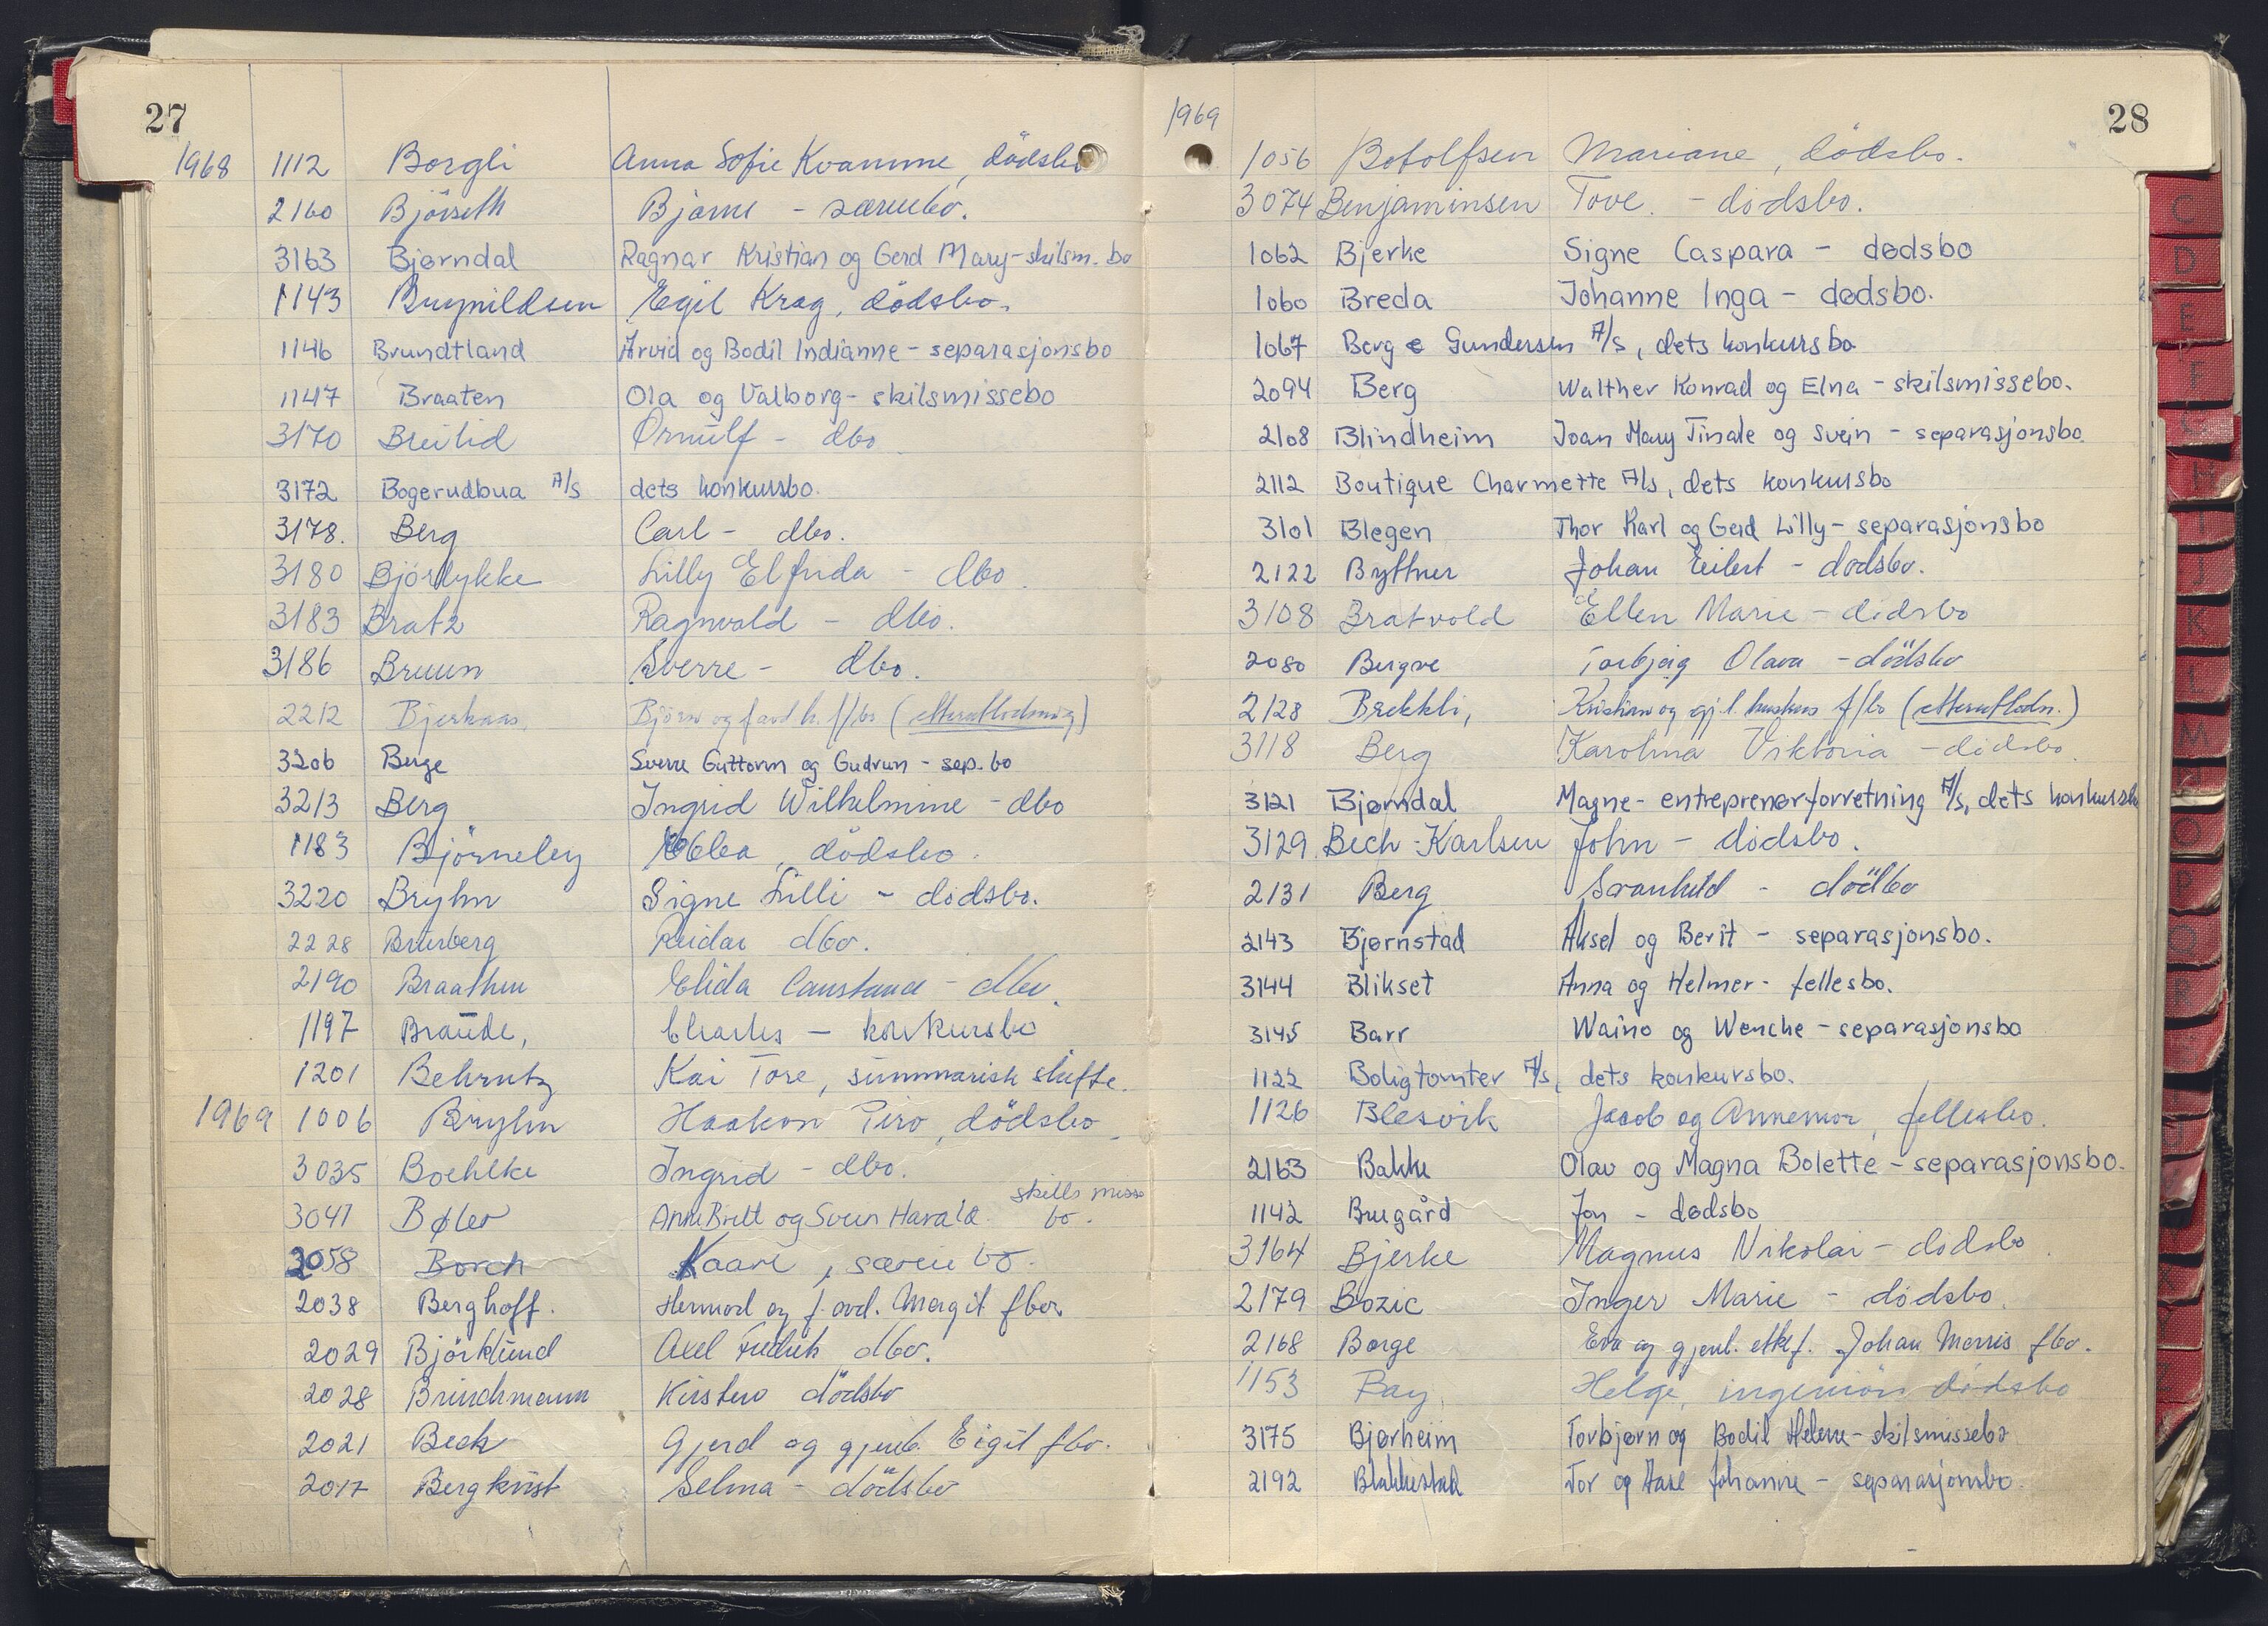 27
1968 1112 Borgli Anna Sofie Kvamme, dödsbo
2160 Bjørseth Bjarne - særeiebo.
3163 Bjørndal Ragnar Kristian og Gerd Mary - skilsm. bo
1143 Brynildsen Egil Krag, dödsbo.
1146 Brundtland Arvid og Bodil Indianne - separasjonsbo
1147 Braaten Ola og Valborg - skilsmissebo
3170 Breilid Ørnulf - dbo
3172 Bogerudbua A/S dets konkursbo.
3178. Berg Carl - dbo.
3180 Bjørlykke Lilly Elfrida - dbo.
3183 Bratz Ragnvald - dbo.
3186 Bruun Sverre - dbo.
2212 Bjerkaas, Bjørn og f.avd. h. f/bo (etterutlodning)
3206 Berge Sverre Guttorm og Gudrun - sep. bo
3213 Berg Ingrid Wilhelmine - dbo
1183 Björneby Ebba, dödsbo.
3220 Bryhn Signe Lilli - dödsbo.
2228 Reidar dbo.
2190 Braathen Elida Constance - dbo.
1197 Braude, Charles - konkursbo
1201 Behrntz Kai Tore, summarisk skifte.
1969 1006 Bryhn Haakon Piro, dödsbo.
3035 Boehlke Ingrid - dbo.
3041 Bøler Anne Britt og Svein Harald. skills misse bo.
2058 Borch Kaare, særeie bo.
2038 Berghoff. Hermod og f. avd. Margit fbo.
2029 Björklund Axel Fredrik dbo.
2028 Brinchmann Kirsten dödsbo
2021 Beck Gjerd og gjenl. Eigil fbo.
2017 Bergkvist Selma - dödsbo
1969
28
1056 Botolfsen Mariane, dödsbo.
3074 Benjaminsen Tove. - dödsbo.
1062 Bjerke Signe Caspara - dødsbo
1060 Breda Johanne Inga - dødsbo.
1067 Berg & Gundersen A/S, dets konkursbo
2094 Berg Walther Konrad og Elna - skilsmissebo.
2108 Blindheim Joan Mary Tindle og Svein - separasjonsbo.
2112 Boutique Charmette A/S, dets konkursbo
3101 Blegen Thor Karl og Gerd Lilly - separasjonsbo
2122 Byttner Johan Eilert - dødsbo.
3108 Bratvold Ellen Marie - dödsbo
2080 Bergve Torbjørg Olava - dödsbo
2128 Brekkli, Kristian og gj.l. f/bo (etterutlodn.)
3118 Berg Karolina Viktoria - dödsbo.
3121 Bjørndal Magne - entreprenørforretning A/S, dets konkursbo
3129. Bech-Karlsen John - dödsbo.
2131 Berg Svanhild - dödbo
2143 Bjørnstad Aksel og Berit - separasjonsbo.
3144 Blikset Anna og Helmer - fellesbo.
3145 Barr Waino og Wenche - separasjonsbo
1122 Boligtomter A/S, dets konkursbo.
1126 Blesvik Jacob og Annemor, fellesbo.
2163 Bakke Olav og Magna Bolette - separasjonsbo.
1142 Buegård Jon - dødsbo
3164 Bjerke Magnus Nikolai - dödsbo.
2179 Bozic Inger Marie - dödsbo.
2168 Borge Eva og gjenl. ektef. Johan Morris fbo.
1153 Bay, Helge, ingeniör dödsbo
3175 Bjørheim Torbjørn og Bodil Helene - skilsmissebo
2192 Blakkestad Tor og Aase Johanne - separasjonsbo.
C
D
E
F
J
K
L
M
O
P
Q
R